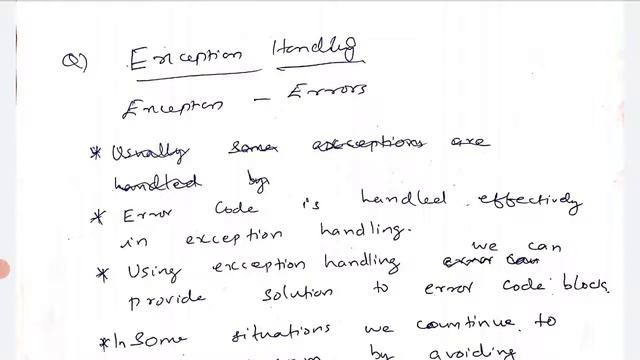 Q) Exception Handling
Exception - Errors
* Usually some exceptions are
handled by
* Error code is handled effectively
in exception handling.
* Using exception handling error can we can
provide solution to error code block.
* In some situations we countinue to
by avoiding